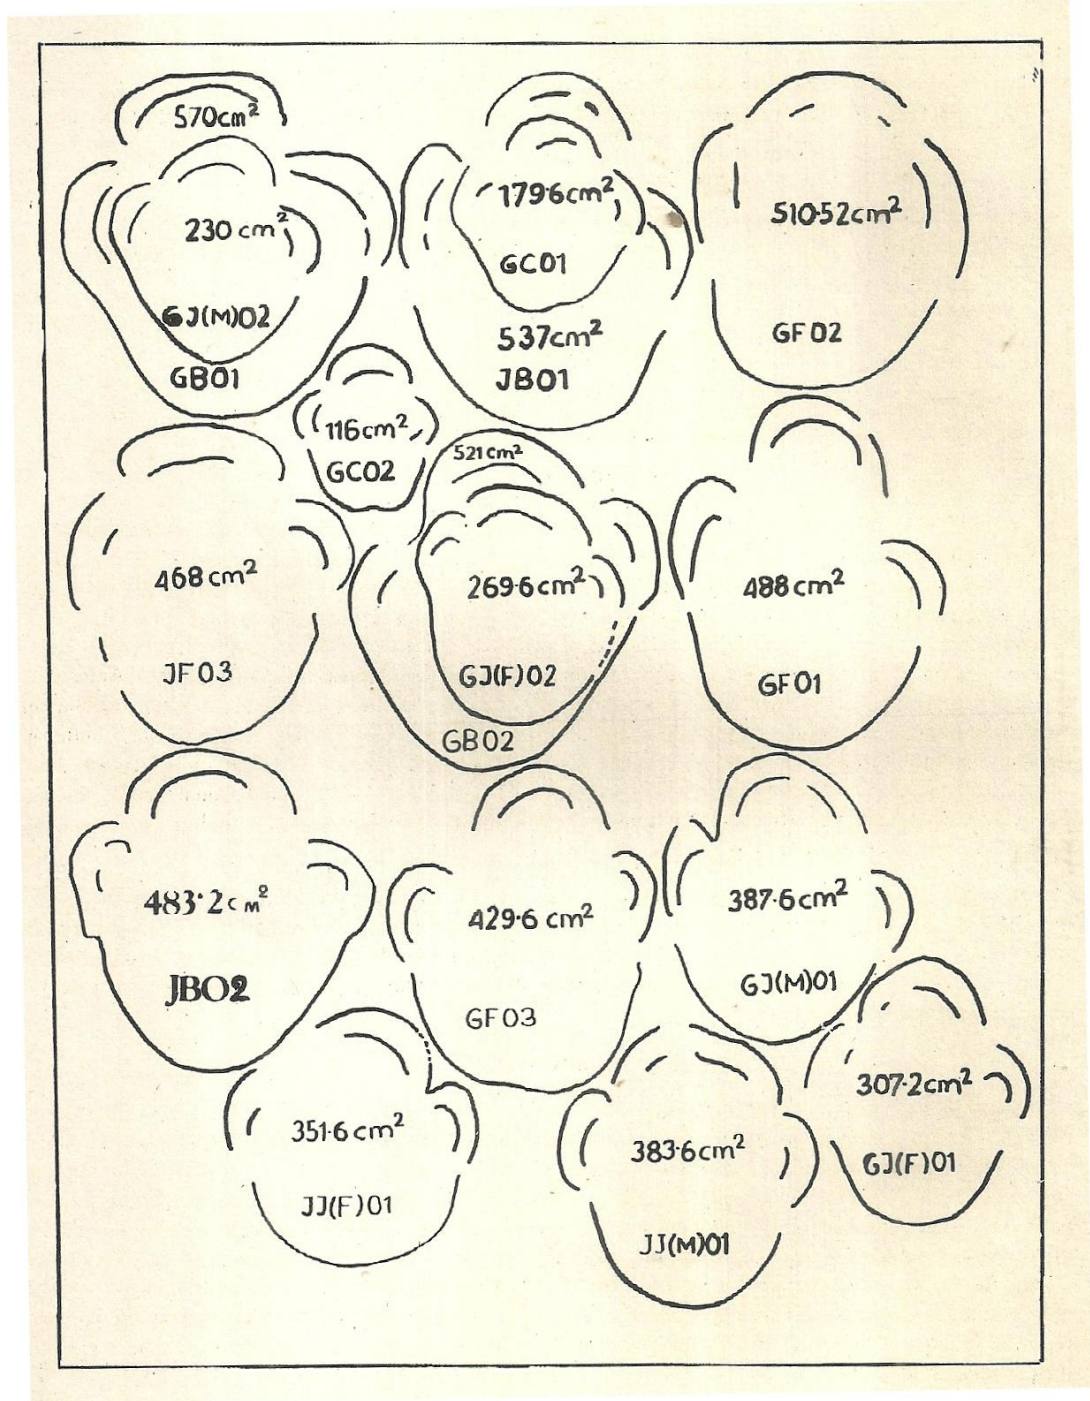 570cm²
230 cm²
GJ(M)02
GB01
179·6cm²
GC01
537cm²
JB01
510·52cm²
GF02
116cm²
GC02
468cm²
JF03
521cm²
269·6cm²
GJ(F)02
GB02
488cm²
GF01
483·2cm²
JB02
429·6 cm²
GF03
387·6cm²
GJ(M)01
351·6cm²
JJ(F)01
383·6cm²
JJ(M)01
307·2cm²
GJ(F)01